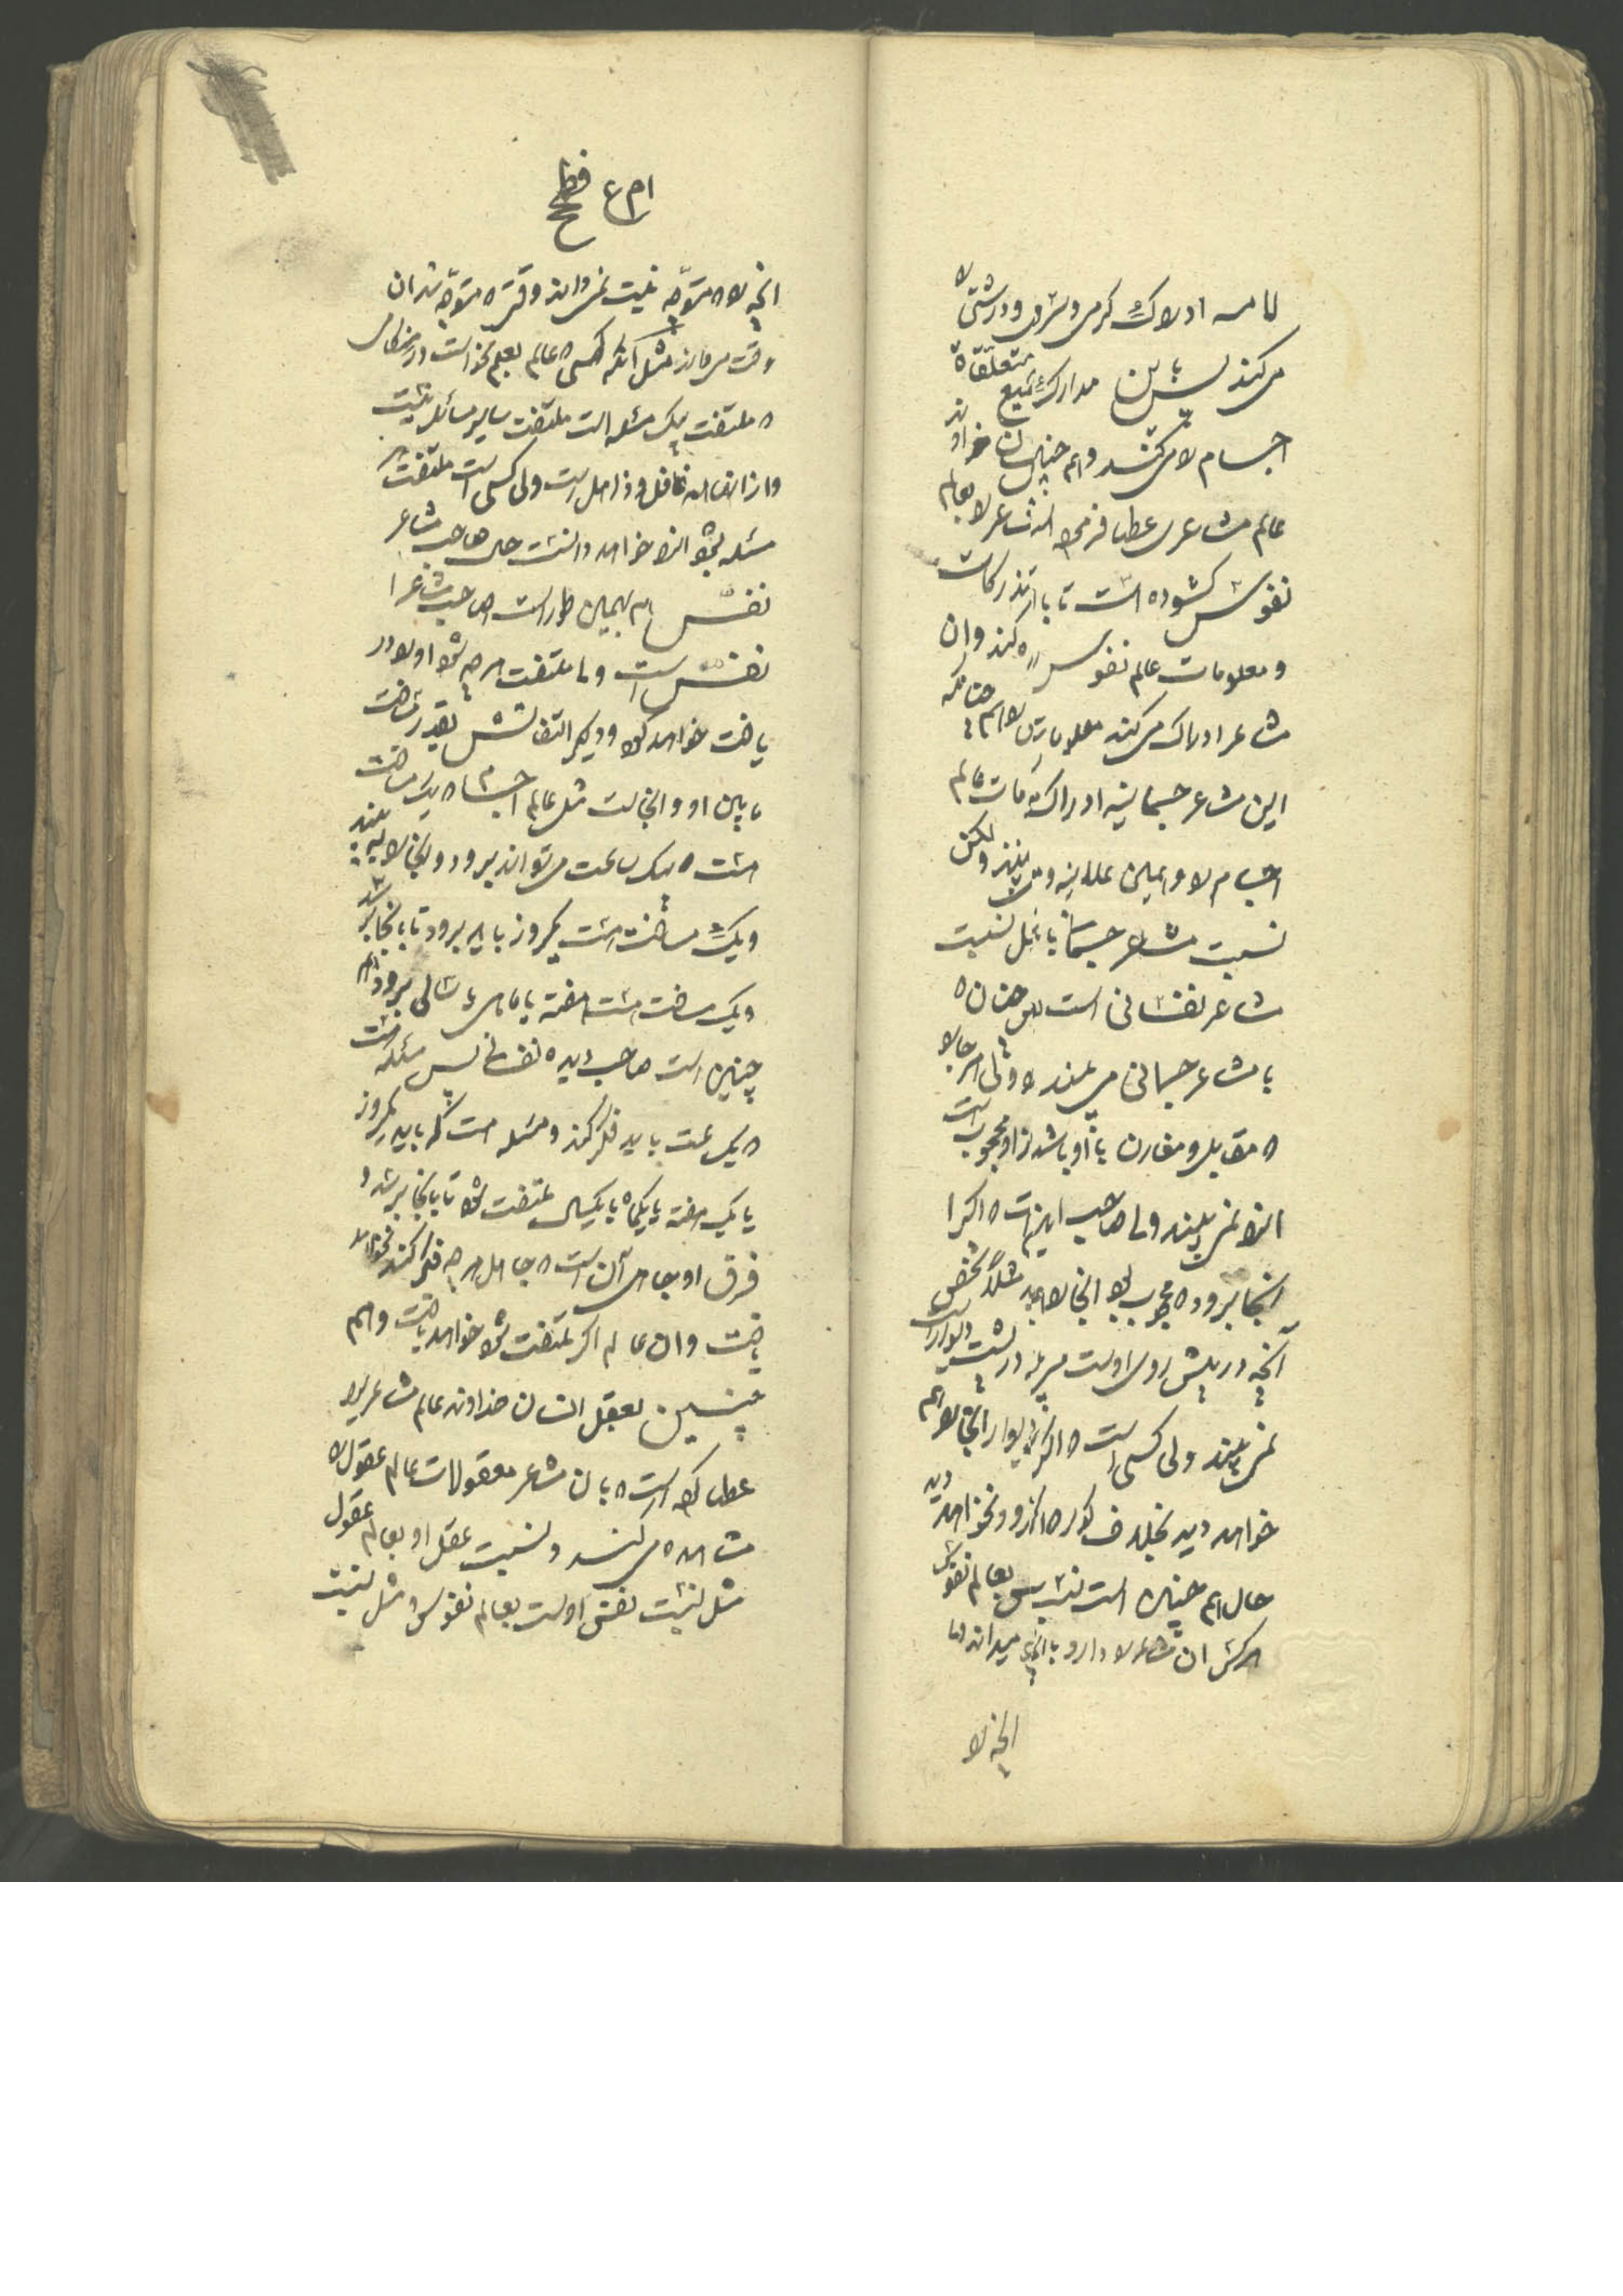 لامسه ادراک گرمی و سردی و درشتی را
می‌کند پس باین مدارک جمیع متعلقات
اجسام را می‌کند و هم چنین خداوند
عالم مشاعری عطا فرموده که مشاعر را بعالم
نفوس گشوده است تا بآن
و معلومات عالم نفوس کند و آن
مشاعر ادراک می‌کند معلومات را هم چنانکه
این مشاعر جسمانیه ادراک عالم
اجسام را و همین علانیه می‌بینند ولکن
نسبت مشاعر جسمانی نسبت
مشاعر نفسانی است پس چنان که
با مشاعر جسمانی می‌بیند ولی هر جا را
که مقابل و مقارن با او باشد و از او محجوب است
انرا نمی‌بیند ولی صاحب اینست که اگر
انجا برود که محجوب بود انجا را مثلا شخص
آنچه در پیش روی اوست می‌بیند در پشت دیوار است
نمی‌بیند ولی کسی است که اگر دیوار انجا را هم
خواهد دید بخلاف کور که اگر رود نخواهد دید
حال هم چنین است نسبتش بعالم نفوس
که ان مشاعر را دارد میداند اما
انچه را
ام ع
انچه را که متوجه نیست نمی‌داند وقتی که متوجه شد ان
وقت می‌داند مثل آنکه کسی که عالم بعلم نحو است در هنگامی
که ملتفت یک مسئله است ملتفت سایر مسائل نیست
و از انها غافل و ذاهل است ولی کسی است ملتفت هر
مسئله بشود انرا خواهد دانست حال صاحب مشاعر
نفس هم بهمین طور است صاحب مشاعر
نفس است و ملتفت هر چه بشود او را در
یافت خواهد کرد و دیگر التفاتش بقدر مسافت
مابین او و انجاست مثل عالم اجسام که یک مسافت
هست که یک ساعت می‌تواند برود و انجا را ببیند
و یک مسافت هست یکروز باید برود تا بانجا برسد
و یک مسافت هست هفته یا ماهی یا سالی برود
چنین است صاحب دیده نفسانی پس مسئله هست
که یک ساعت باید فکر کند و مسئله هست که باید یکروز
یا یک هفته یا یکماه یا یکسال ملتفت شود تا بانجا برسد و
فرق او و جاهل آن است که جاهل هر چه فکر کند نخواهد
یافت و ان عالم اگر ملتفت شود خواهد یافت و هم
چنین بعقل انسان خداوند عالم مشاعری
عطا کرده است که بان مشاعر معقولات عالم عقول را
مشاهده می‌کند و نسبت عقل او بعالم عقول
مثل نسبت نفس اوست بعالم نفوس و مثل نسبت